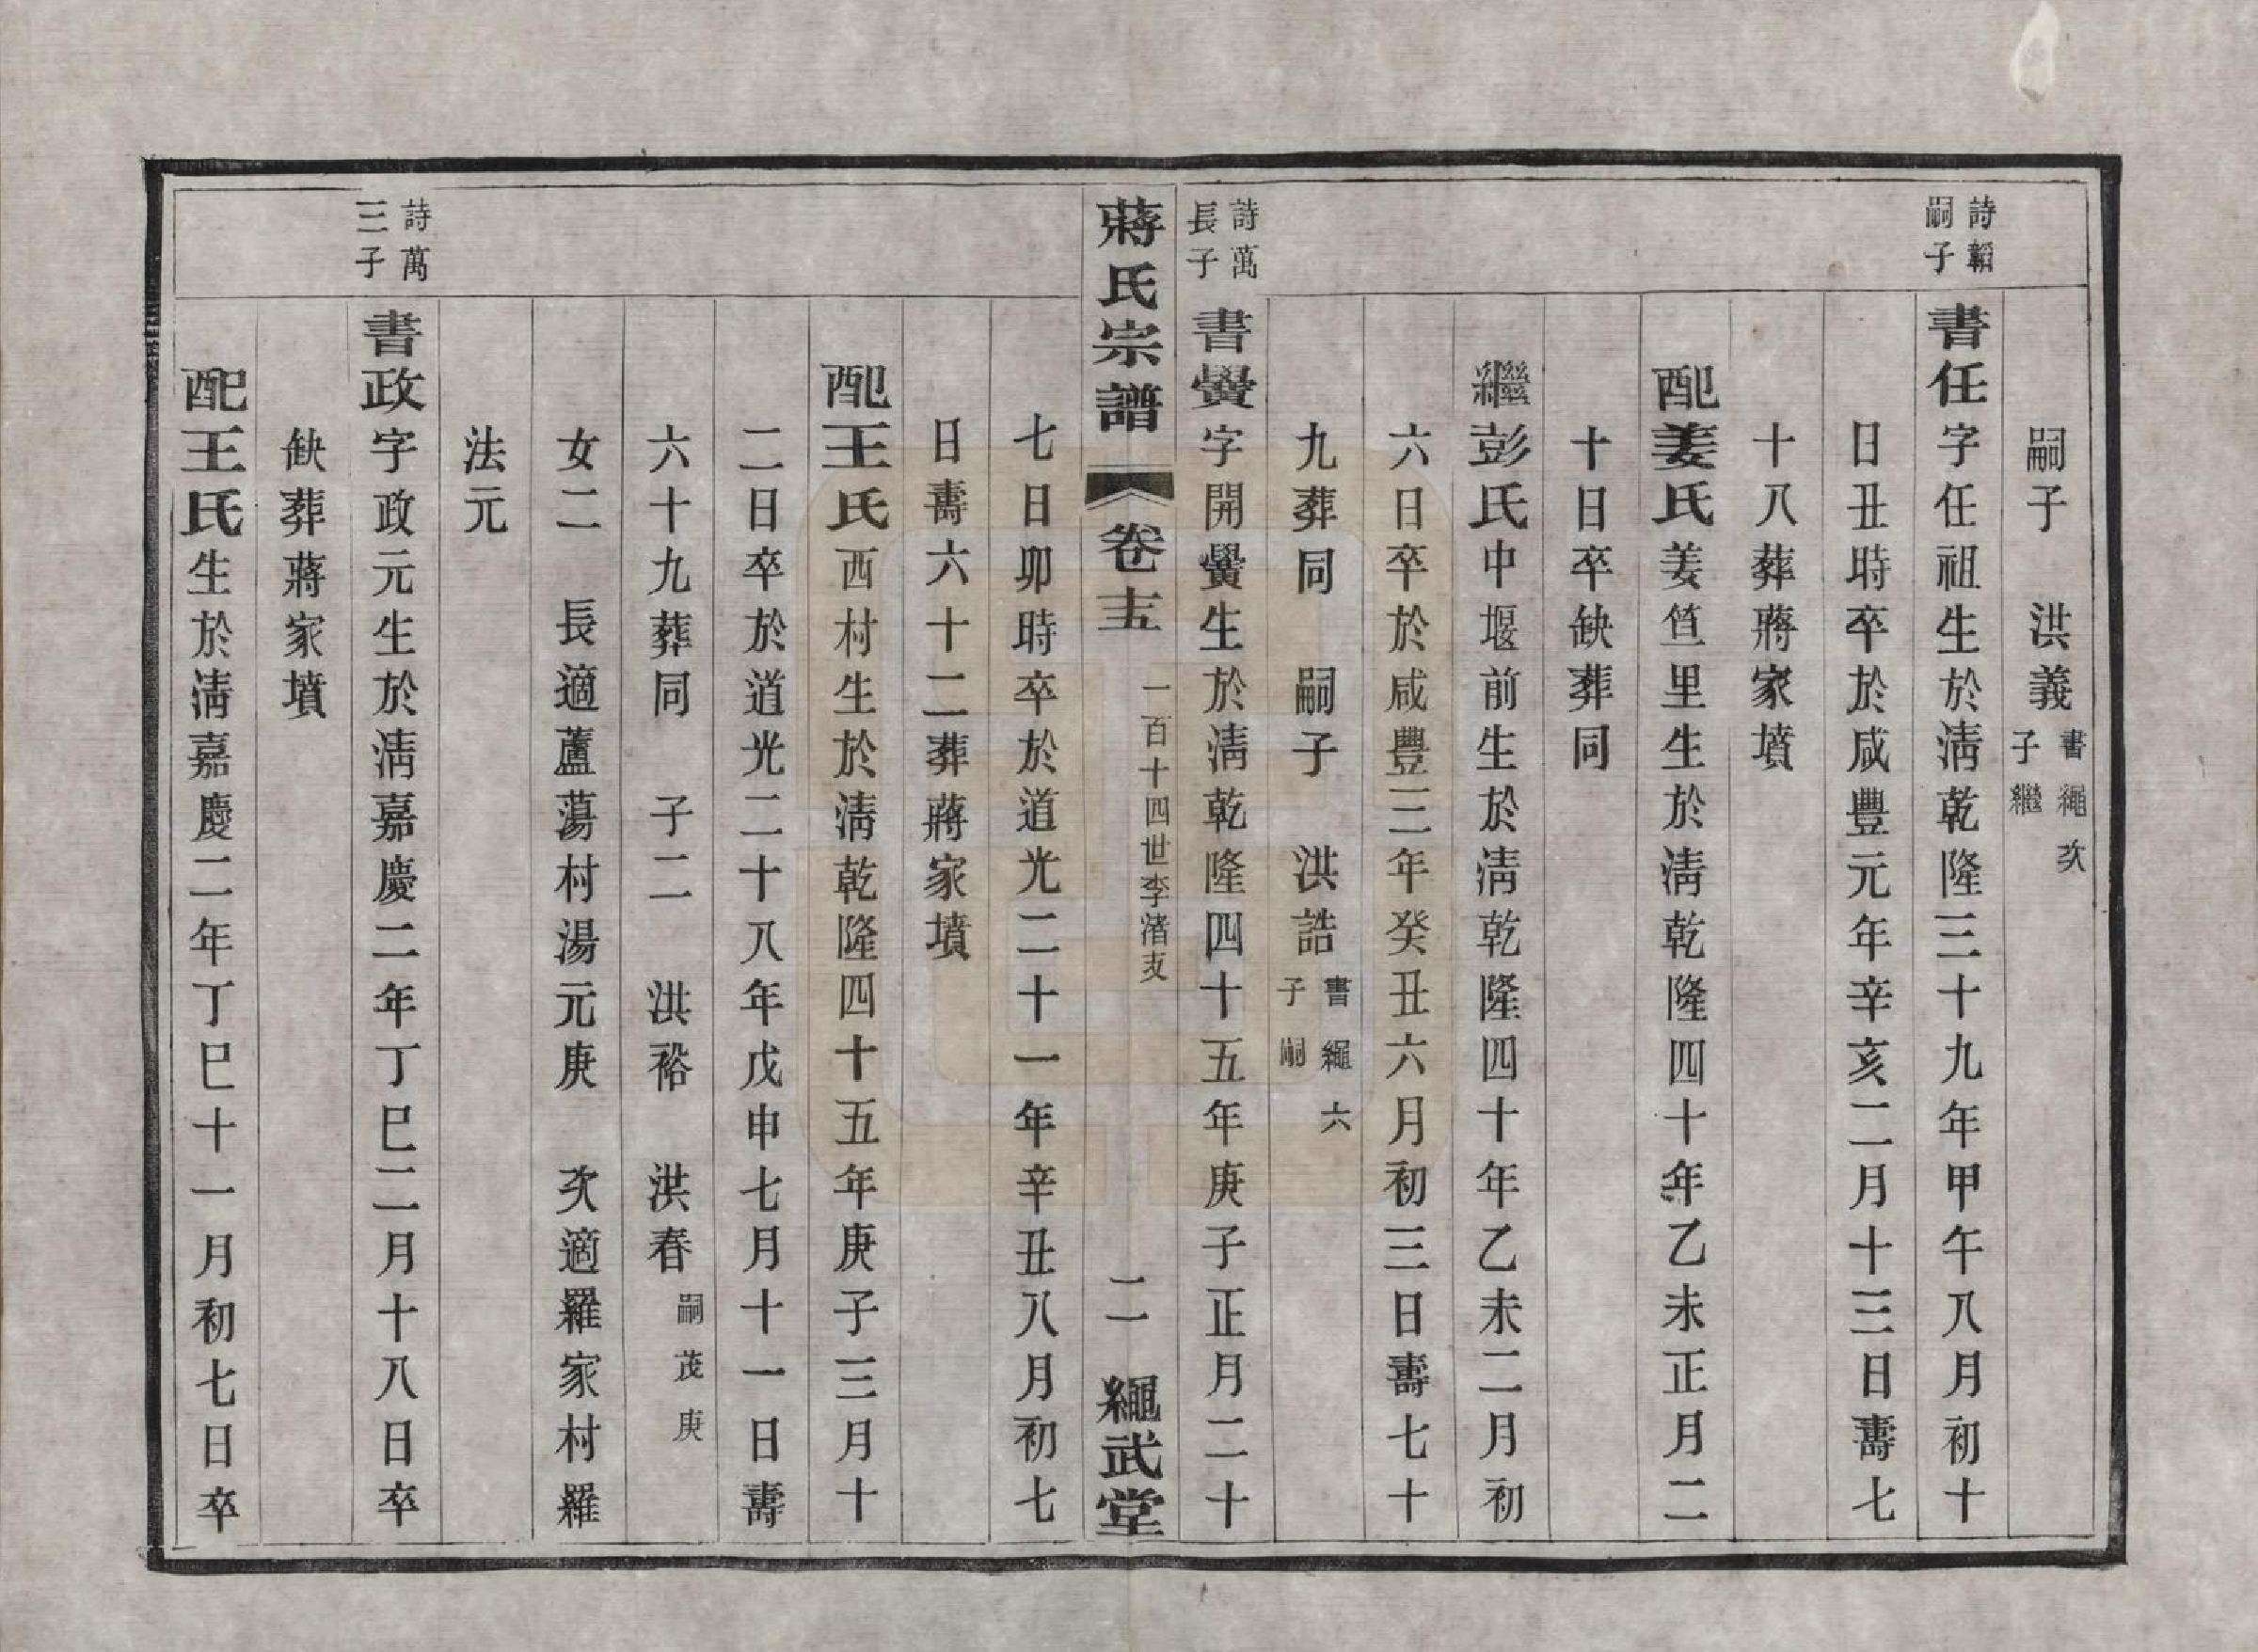 嗣子　洪義書繩次子繼
詩韜嗣子
書任字任祖生於淸乾隆三十九年甲午八月初十
日丑時卒於咸豐元年辛亥二月十三日壽七
十八葬蔣家墳
配姜氏姜笪里生於淸乾隆四十年乙未正月二
十日卒缺葬同
繼彭氏中堰前生於淸乾隆四十年乙未二月初
六日卒於咸豐三年癸丑六月初三日壽七十
九葬同　嗣子　洪誥書繩六子嗣
詩萬長子
書黌字開黌生於淸乾隆四十五年庚子正月二十
蔣氏宗譜　卷十五　一百十四世李渚支　二　繩武堂
七日卯時卒於道光二十一年辛丑八月初七
日壽六十二葬蔣家墳
配王氏西村生於淸乾隆四十五年庚子三月十
二日卒於道光二十八年戊申七月十一日壽
六十九葬同　子二　洪裕　洪春嗣茂庚
女二　長適蘆蕩村湯元庚　次適羅家村羅
法元
詩萬三子
書政字政元生於淸嘉慶二年丁巳二月十八日卒
缺葬蔣家墳
配王氏生於淸嘉慶二年丁巳十一月初七日卒